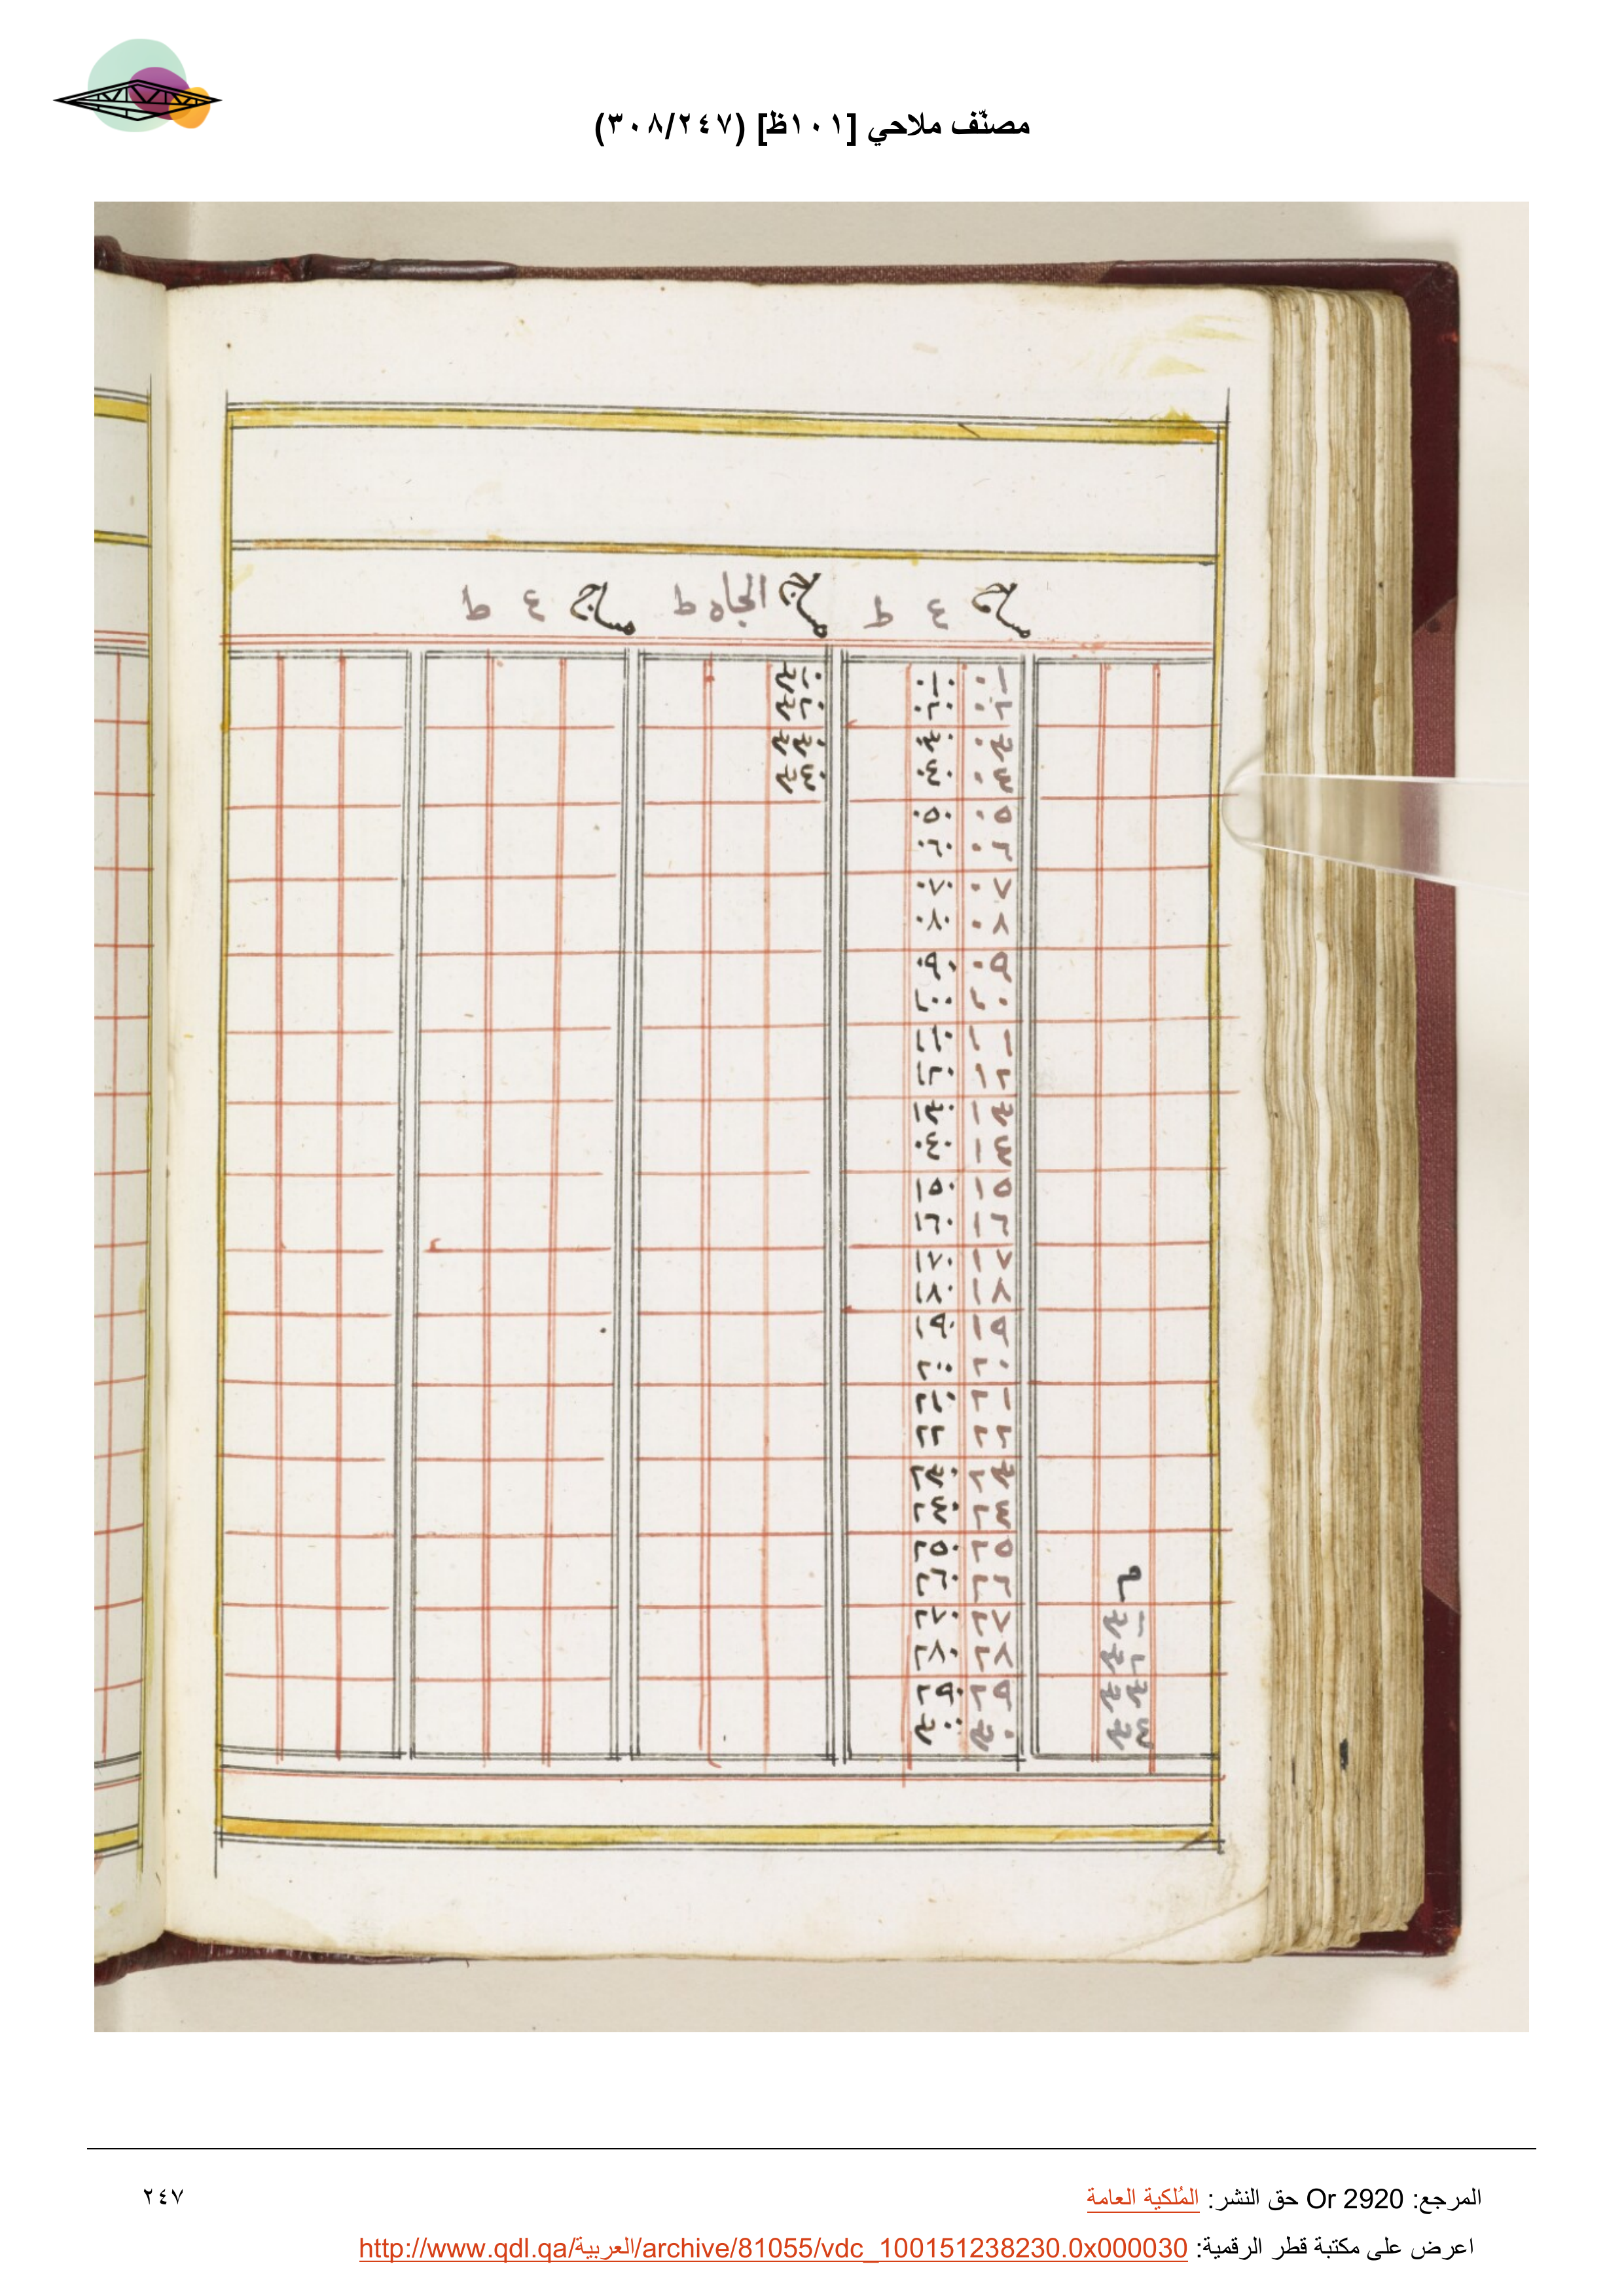 مصنّف ملاحي [١٠١ظ] (٣٠٨/٢٤٧)
مساج ٤ ط مساج الجاه ط مساج ٤ ط
١٠ ٠١٠
٢٠ ٠٢٠
٣٠ ٠٣٠
٤٠ ٠٤٠
٥٠ ٠٥٠
٦٠ ٠٦٠
٧٠ ٠٧٠
٨٠ ٠٨٠
٩٠ ٠٩٠
١٠ ١٠٠
١١ ١١٠
١٢ ١٢٠
١٣ ١٣٠
١٤ ٠٤٠
١٥ ١٥٠
١٦ ١٦٠
١٧ ١٧٠
١٨ ١٨٠
١٩ ١٩٠
٢٠ ٢٠٠
٢١ ٢١٠
٢٢ ٢٢
٢٣ ٢٣٠
٢٤ ٢٤٠
٢٥ ٢٥٠
٢٦ ٢٦٠
٢٧ ٢٧٠
٢٨ ٢٨٠
٢٩ ٢٩٠
٣٠ ٣٠٠
المرجع: Or 2920 حق النشر: المُلكية العامة
٢٤٧
اعرض على مكتبة قطر الرقمية: http://www.qdl.qa/العربية/archive/81055/vdc_100151238230.0x000030